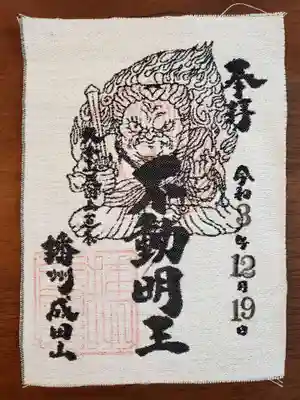 奉拝
令和3年12月19日
不動明王
播州成田山